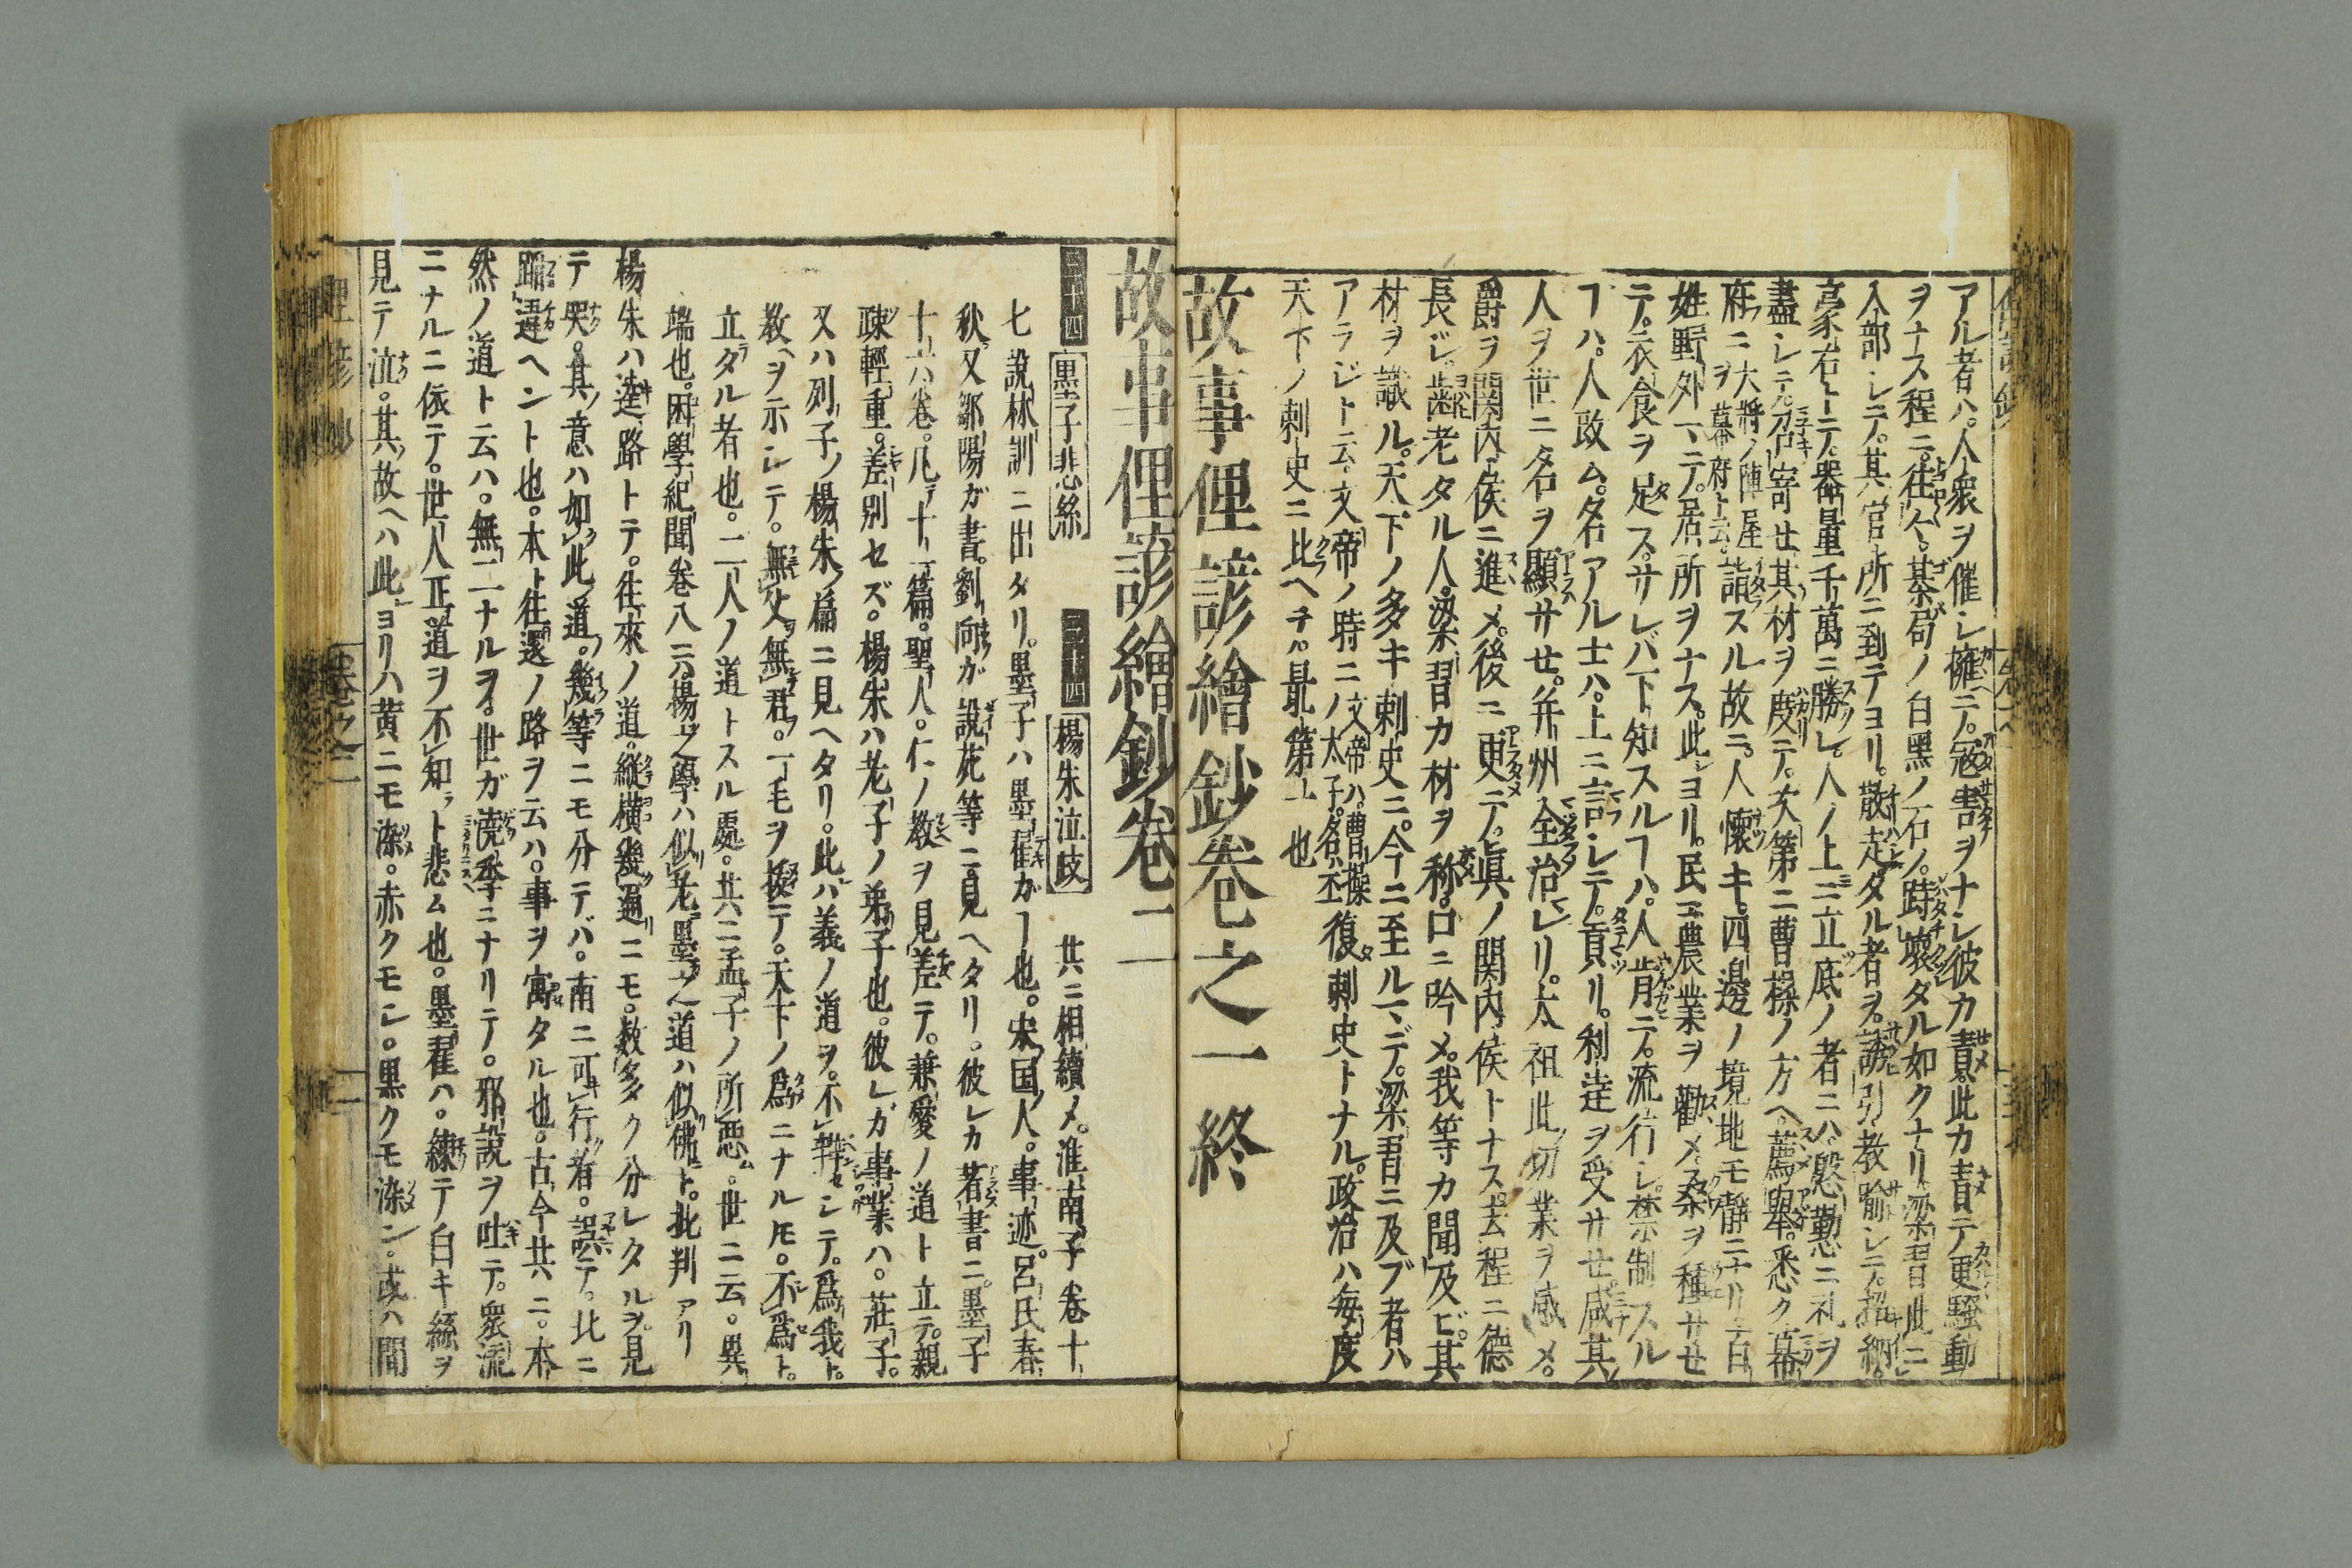 アル者ハ。人衆ヲ催シ擁ニテ。冦害ヲナシ彼カ責此カ責テ更騒動
ヲナス程ニ。往々。棊局ノ白黒ノ石ノ。踦壞タル如クナリ梁習此ニ
入部シニテ。其官所ニ到テヨリ。散走タル者ヲ。誘引教喩シニテ。招納。
豪右トニテ。器量千萬ニ勝レ。人ノ上ニ立底ノ者ニハ。慇懃ニ礼ヲ
盡シテ。召寄セ其材ヲ度ニテ。次第ニ曹操ノ方ヘ。薦舉。悉ク幕
府ニ大將ノ陣屋ヲ幕府ト云。詣スル故ニ。人懷キ。四邊ノ境地モ靜ニナリ百
姓野外ニテ。居所ヲナス。此ヨリ。民ニ農業ヲ勸メ。桑ヲ種サセ
テ。衣食ヲ足ス。サレバ下知スルヿハ。人肯ニテ。流行シ。禁制スル
ヿハ。人改ム。名アル士ハ。上ニ言シニテ。貢リ。利達ヲ受サセ。咸其
人ヲ世ニ名ヲ顯サセ。并州全治レリ。太祖此功業ヲ感メ。
爵ヲ関内侯ニ進メ。後ニ更ニテ。眞ノ関内侯トナス。去程ニ德
長ジ。齒老タル人。梁習カ材ヲ称。口ニ吟メ。我等カ聞及ビ。其
材ヲ識ル。天下ノ多キ刺史ニ。今ニ至ルマデ。梁習ニ及ブ者ハ
アラジト云。文帝ノ時ニ文帝ハ。曹操ノ太子。名丕復刺史トナル。政治ハ毎度
天下ノ刺史ニ比ヘテハ。最第一也
故事俚諺繪鈔卷之一終
故事俚諺繪鈔卷二
三十四 墨子悲絲 三十四 楊朱泣歧 共ニ相續メ。淮南子卷十
七說林訓ニ出タリ。墨子ハ墨翟がヿ也。宋国人。事迹。呂氏春
秋。又鄒陽ガ書。劉向が說苑等ニ見ヘタリ。彼レカ著書ニ。墨子
十六卷。凡テ十一篇。聖人。仁ノ敎ヲ見差ニテ。兼愛ノ道ト立テ。親
疎輕重。差別セズ。楊朱ハ老子ノ弟子也。彼レガ事業ハ。莊子。
又ハ列子ノ楊朱篇ニ見ヘタリ。此ハ義ノ道ヲ。不辨シテ。爲我ト。
敎ヲ示シテ。無父無君。一毛ヲ拔ニテ。天下ノ爲ニナルモ。不爲ト。
立タル者也。二人ノ道トスル處。共ニ孟子ノ所惡。世ニ云。異
端也。困學紀聞卷八云。楊之學ハ似老墨之道ハ似佛ト。批判アリ
楊朱ハ逵路トテ。往來ノ道。縱橫幾通ニモ。数多ク分レタルヲ。見
テ哭。其意ハ如此道。幾等ニモ分テバ。南ニ可行者。誤テ。北ニ
踊違ヘント也。本ト往還ノ路ヲ云ハ。事ヲ寓タル也。古今共ニ。本
然ノ道ト云ハ。無二ナルヲ。世ガ澆季ニナリテ。邪說ヲ吐テ。衆流
ニナルニ依テ。世人正道ヲ不知ト悲ム也。墨翟ハ。練テ白キ絲ヲ
見テ泣。其故ヘハ此ヨリハ黄ニモ染。赤クモシ。黒クモ染ン。或ハ間
俚諺鈔 卷之二 一